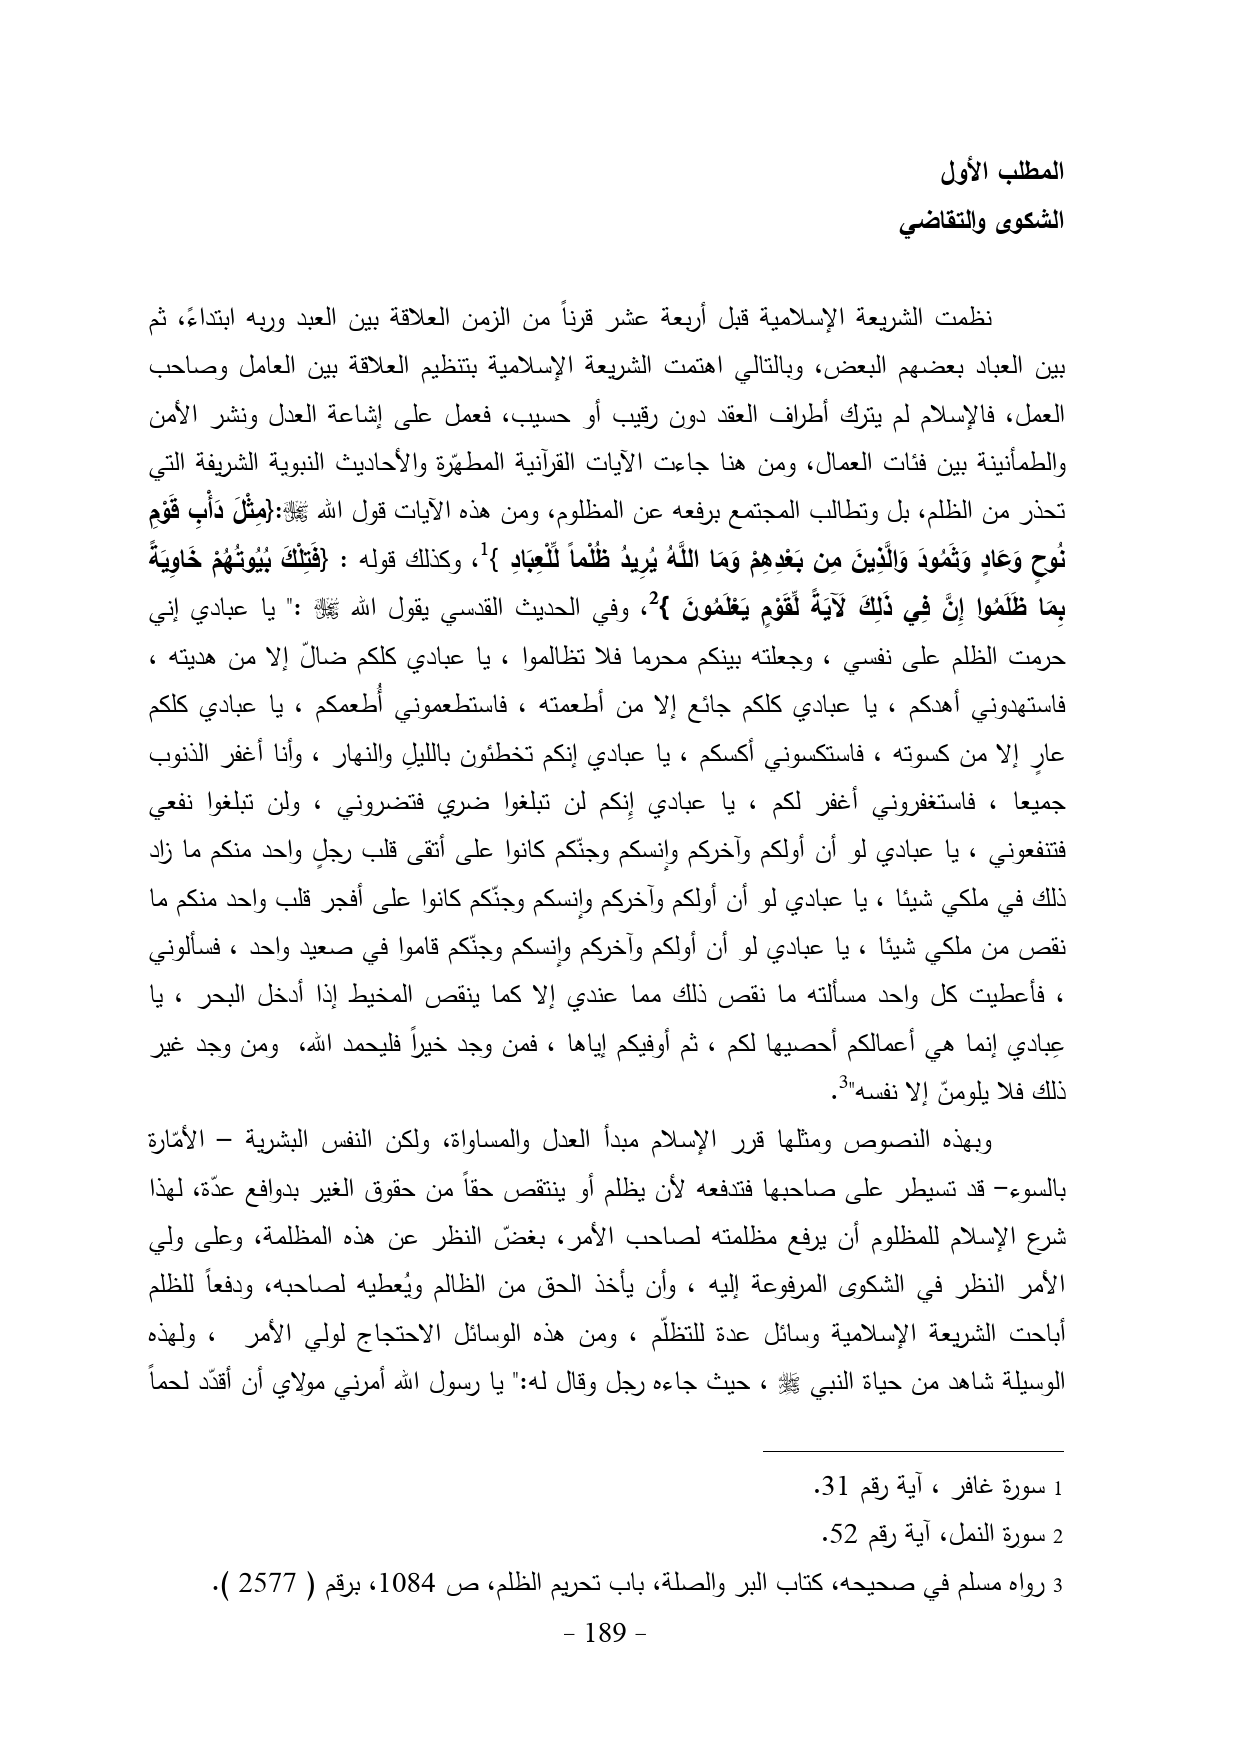 المطلب الأول
الشكوى والتقاضي
نظمت الشريعة الإسلامية قبل أربعة عشر قرناً من الزمن العلاقة بين العبد وربه ابتداءً، ثم
بين العباد بعضهم البعض، وبالتالي اهتمت الشريعة الإسلامية بتنظيم العلاقة بين العامل وصاحب
العمل، فالإسلام لم يترك أطراف العقد دون رقيب أو حسيب، فعمل على إشاعة العدل ونشر الأمن
والطمأنينة بين فئات العمال، ومن هنا جاءت الآيات القرآنية المطهّرة والأحاديث النبوية الشريفة التي
تحذر من الظلم، بل وتطالب المجتمع برفعه عن المظلوم، ومن هذه الآيات قول الله ﷻ:{مِثْلَ دَأْبِ قَوْمِ
نُوحٍ وَعَادٍ وَثَمُودَ وَالَّذِينَ مِن بَعْدِهِمْ وَمَا اللَّهُ يُرِيدُ ظُلْماً لِّلْعِبَادِ }1، وكذلك قوله : {فَتِلْكَ بُيُوتُهُمْ خَاوِيَةً
بِمَا ظَلَمُوا إِنَّ فِي ذَلِكَ لَآيَةً لِّقَوْمٍ يَعْلَمُونَ }2، وفي الحديث القدسي يقول الله ﷻ :" يا عبادي إني
حرمت الظلم على نفسي ، وجعلته بينكم محرما فلا تظالموا ، يا عبادي كلكم ضالّ إلا من هديته ،
فاستهدوني أهدكم ، يا عبادي كلكم جائع إلا من أطعمته ، فاستطعموني أُطعمكم ، يا عبادي كلكم
عارٍ إلا من كسوته ، فاستكسوني أكسكم ، يا عبادي إنكم تخطئون بالليلِ والنهار ، وأنا أغفر الذنوب
جميعا ، فاستغفروني أغفر لكم ، يا عبادي إِنكم لن تبلغوا ضري فتضروني ، ولن تبلغوا نفعي
فتنفعوني ، يا عبادي لو أن أولكم وآخركم وإنسكم وجنّكم كانوا على أتقى قلب رجلٍ واحد منكم ما زاد
ذلك في ملكي شيئا ، يا عبادي لو أن أولكم وآخركم وإنسكم وجنّكم كانوا على أفجر قلب واحد منكم ما
نقص من ملكي شيئا ، يا عبادي لو أن أولكم وآخركم وإنسكم وجنّكم قاموا في صعيد واحد ، فسألوني
، فأعطيت كل واحد مسألته ما نقص ذلك مما عندي إلا كما ينقص المخيط إذا أدخل البحر ، يا
عِبادي إنما هي أعمالكم أحصيها لكم ، ثم أوفيكم إياها ، فمن وجد خيراً فليحمد الله، ومن وجد غير
ذلك فلا يلومنّ إلا نفسه"3.
وبهذه النصوص ومثلها قرر الإسلام مبدأ العدل والمساواة، ولكن النفس البشرية – الأمّارة
بالسوء– قد تسيطر على صاحبها فتدفعه لأن يظلم أو ينتقص حقاً من حقوق الغير بدوافع عدّة، لهذا
شرع الإسلام للمظلوم أن يرفع مظلمته لصاحب الأمر، بغضّ النظر عن هذه المظلمة، وعلى ولي
الأمر النظر في الشكوى المرفوعة إليه ، وأن يأخذ الحق من الظالم ويُعطيه لصاحبه، ودفعاً للظلم
أباحت الشريعة الإسلامية وسائل عدة للتظلّم ، ومن هذه الوسائل الاحتجاج لولي الأمر ، ولهذه
الوسيلة شاهد من حياة النبي ﷺ ، حيث جاءه رجل وقال له:" يا رسول الله أمرني مولاي أن أقدّد لحماً
1 سورة غافر ، آية رقم 31.
2 سورة النمل، آية رقم 52.
3 رواه مسلم في صحيحه، كتاب البر والصلة، باب تحريم الظلم، ص 1084، برقم ( 2577 ).
- 189 -